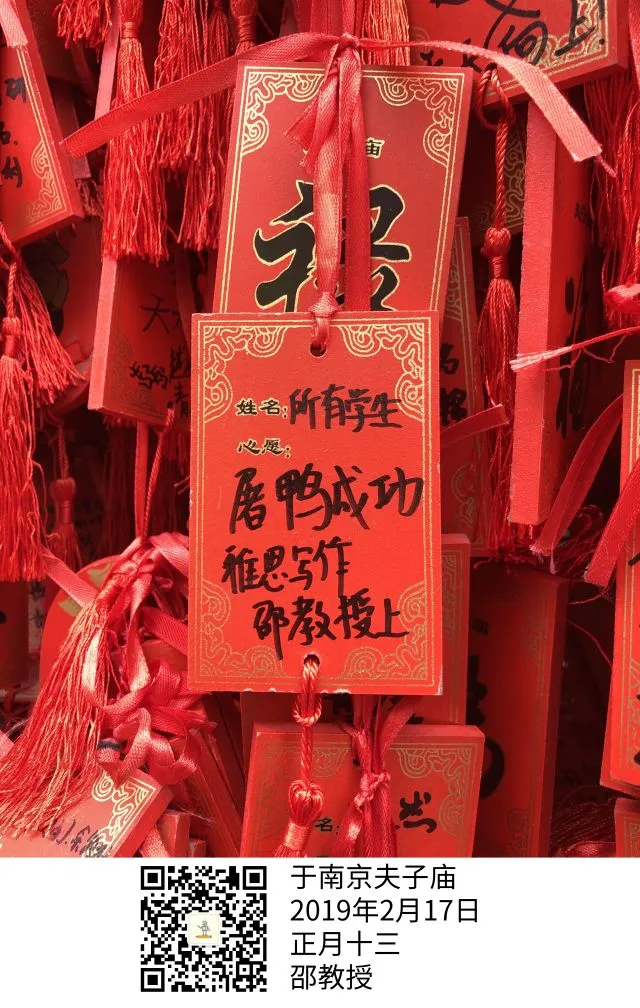 向上!
庙
禄
姓名:所有学生
心愿:
屠鸭成功
雅思写作
邵教授上
天
妈妈
名
于南京夫子庙
2019年2月17日
正月十三
邵教授